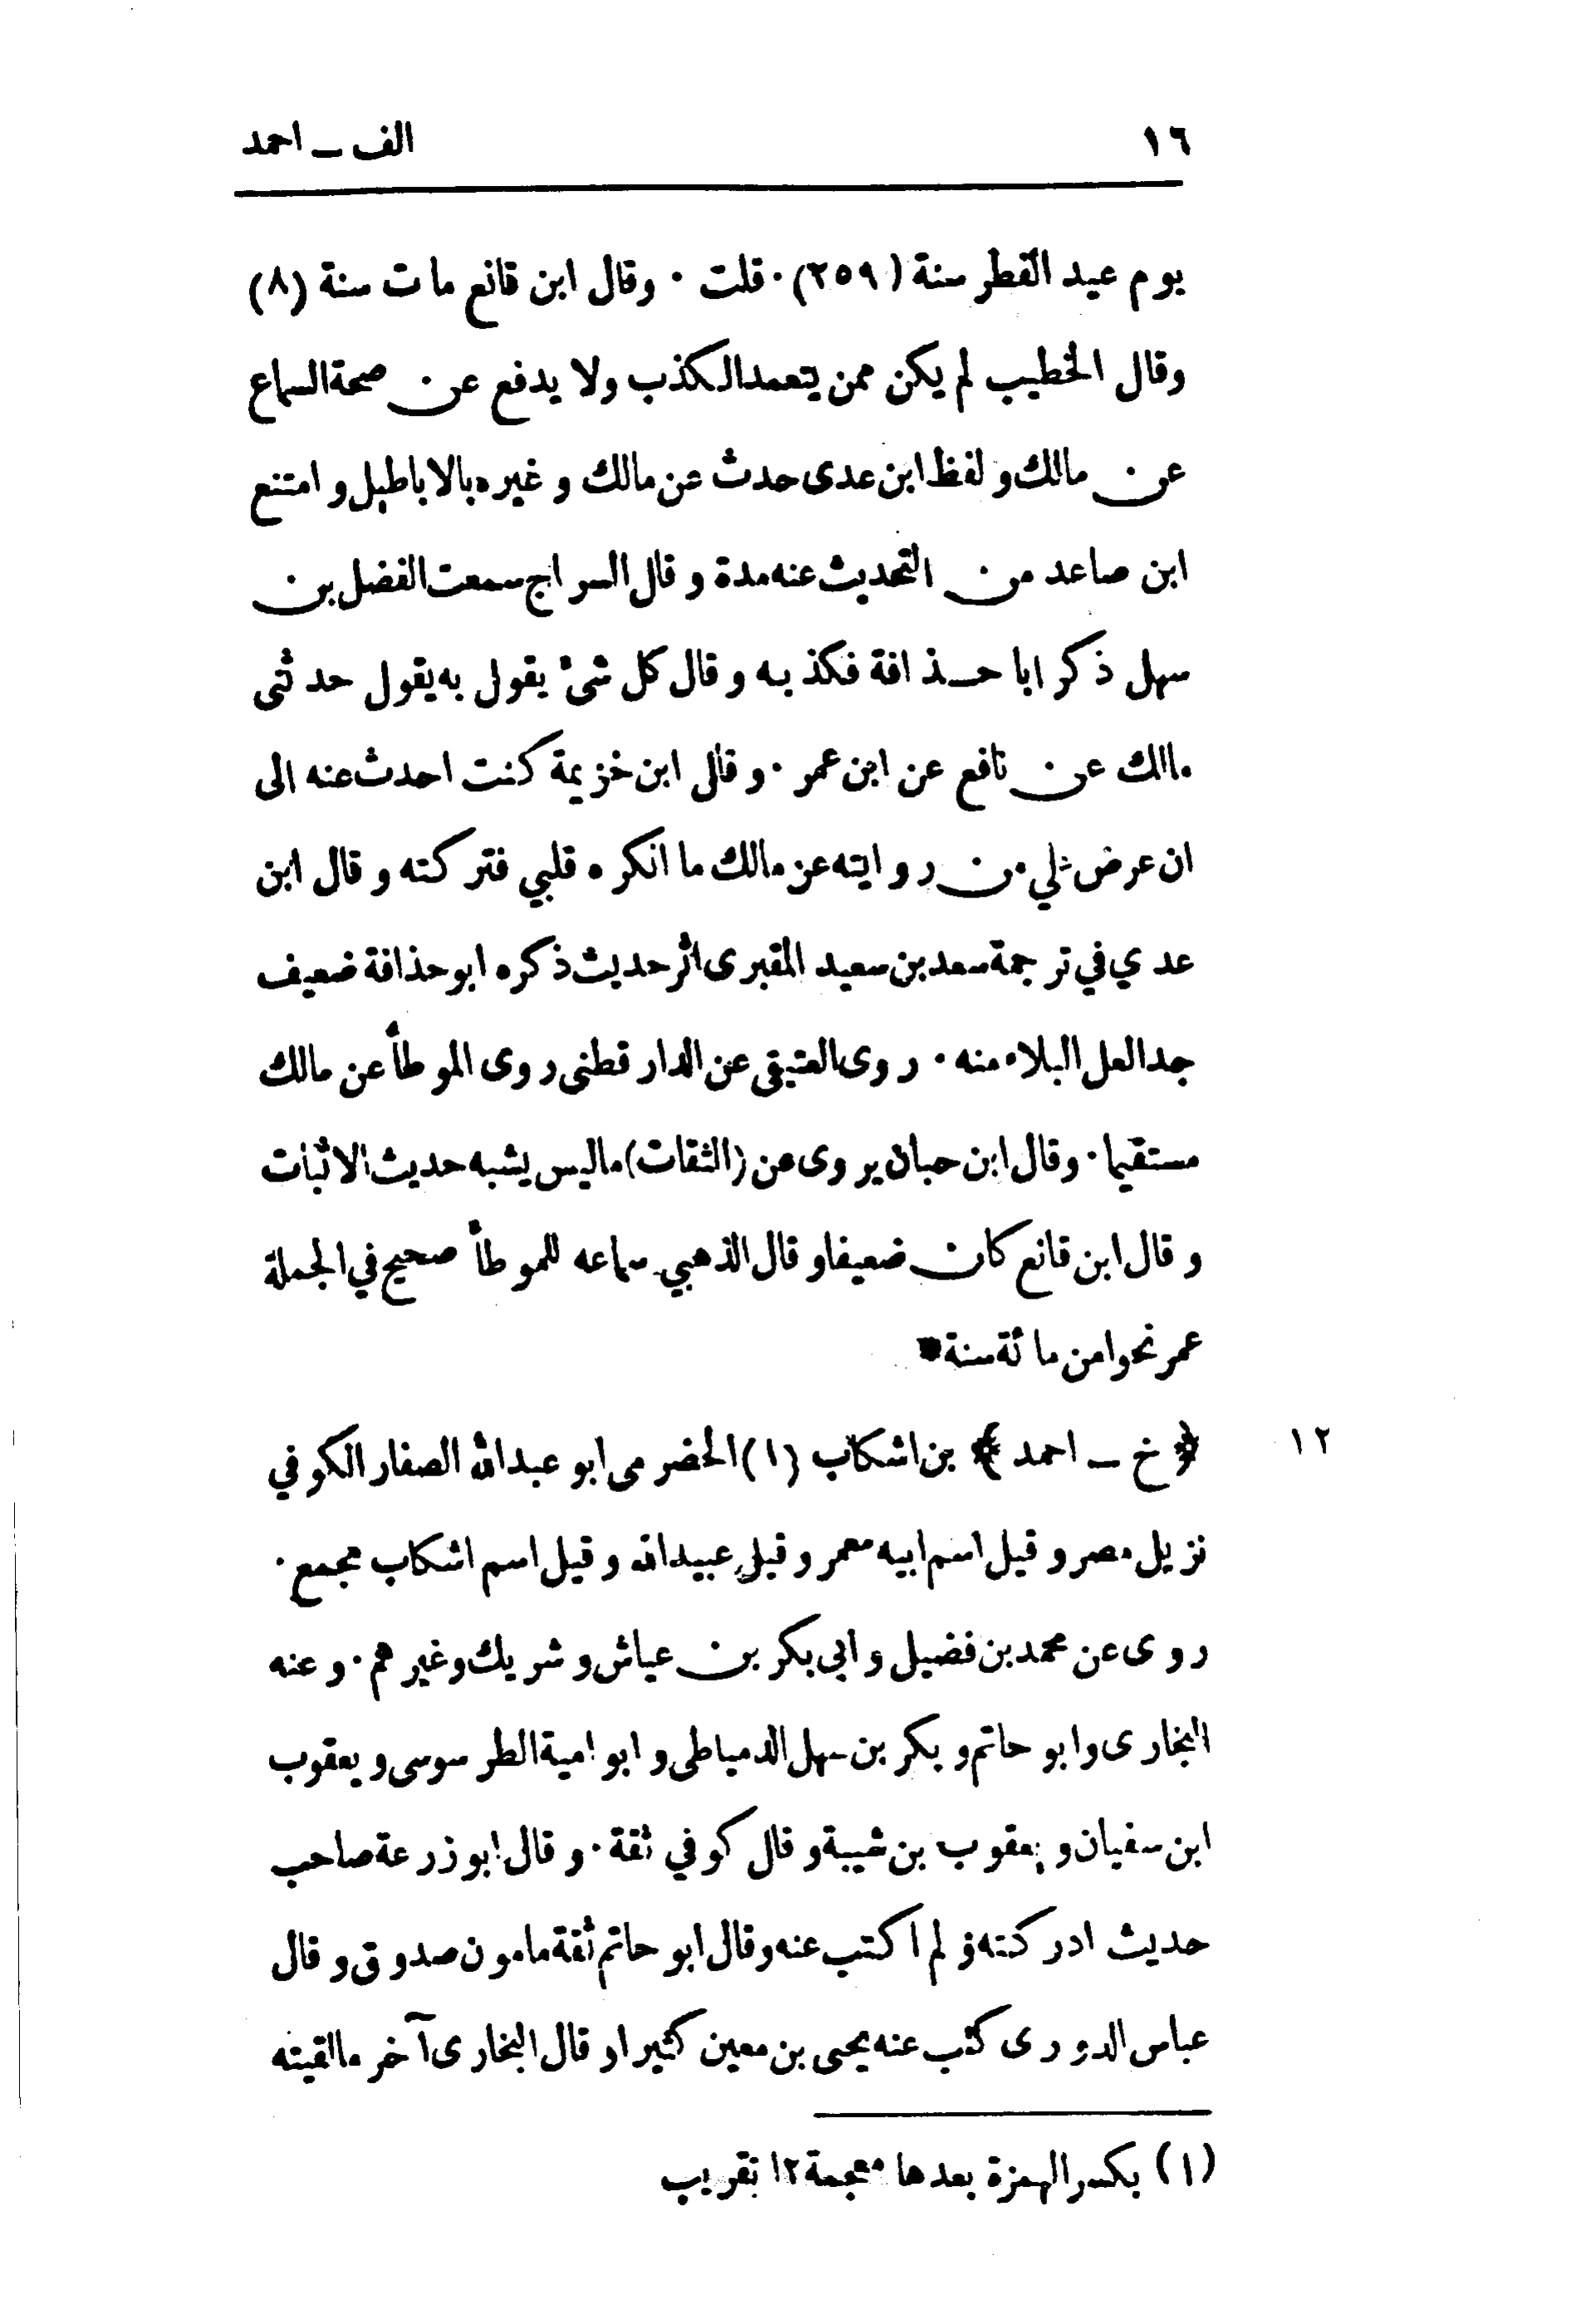 ١٦
الف ــ احمد
يوم عيد الفطر سنة (٢٥٩) ٠ قلت ٠ وقال ابن قانع مات سنة (٨)
وقال الخطيب لم يكن ممن يتعمد الكذب ولا يدفع عن صحة السماع
عن مالك ولفظ ابن عدى حدث عن مالك وغيره بالاباطيل وامتنع
ابن صاعد من التحديث عنه مدة وقال السراج سمعت الفضل بن
سهل ذكر ابا حذافة فكذبه وقال كل شئ يقول به يقول حدثنى
مالك عن نافع عن ابن عمر ٠ وقال ابن خزيمة كنت احدث عنه الى
ان عرض علي من روايته عن مالك ما انكره قلبي فتركته وقال ابن
عدي في ترجمة سعد بن سعيد المقبرى اثر حديث ذكره ابو حذافة ضعيف
جدا لعل البلاء منه ٠ روى العتيقى عن الدارقطنى روى الموطأ عن مالك
مستقيما ٠ وقال ابن حبان يروى عن (الثقات) ما ليس يشبه حديث الاثبات
وقال ابن قانع كان ضعيفا وقال الذهبي سماعه للموطأ صحيح في الجملة
عمر نحوا من مائة سنة *
١٢ ﴿ خ ــ احمد ﴾ بن اشكاب (١) الحضرمى ابو عبدالله الصفار الكوفي
نزيل مصر وقيل اسم ابيه معمر وقيل عبيدالله وقيل اسم اشكاب مجمع ٠
روى عن محمد بن فضيل وابى بكر بن عياش وشريك وغيرهم ٠ وعنه
البخارى وابو حاتم وبكر بن سهل الدمياطى وابو امية الطرسوسى ويعقوب
ابن سفيان ويعقوب بن شيبة وقال كوفي ثقة ٠ وقال ابو زرعة صاحب
حديث ادركته ولم اكتب عنه وقال ابو حاتم ثقة مامون صدوق وقال
عباس الدورى كتب عنه يحيى بن معين كثيرا وقال البخارى آخر مالقيته
(١) بكسر الهمزة بعدها معجمة ١٢ تقريب